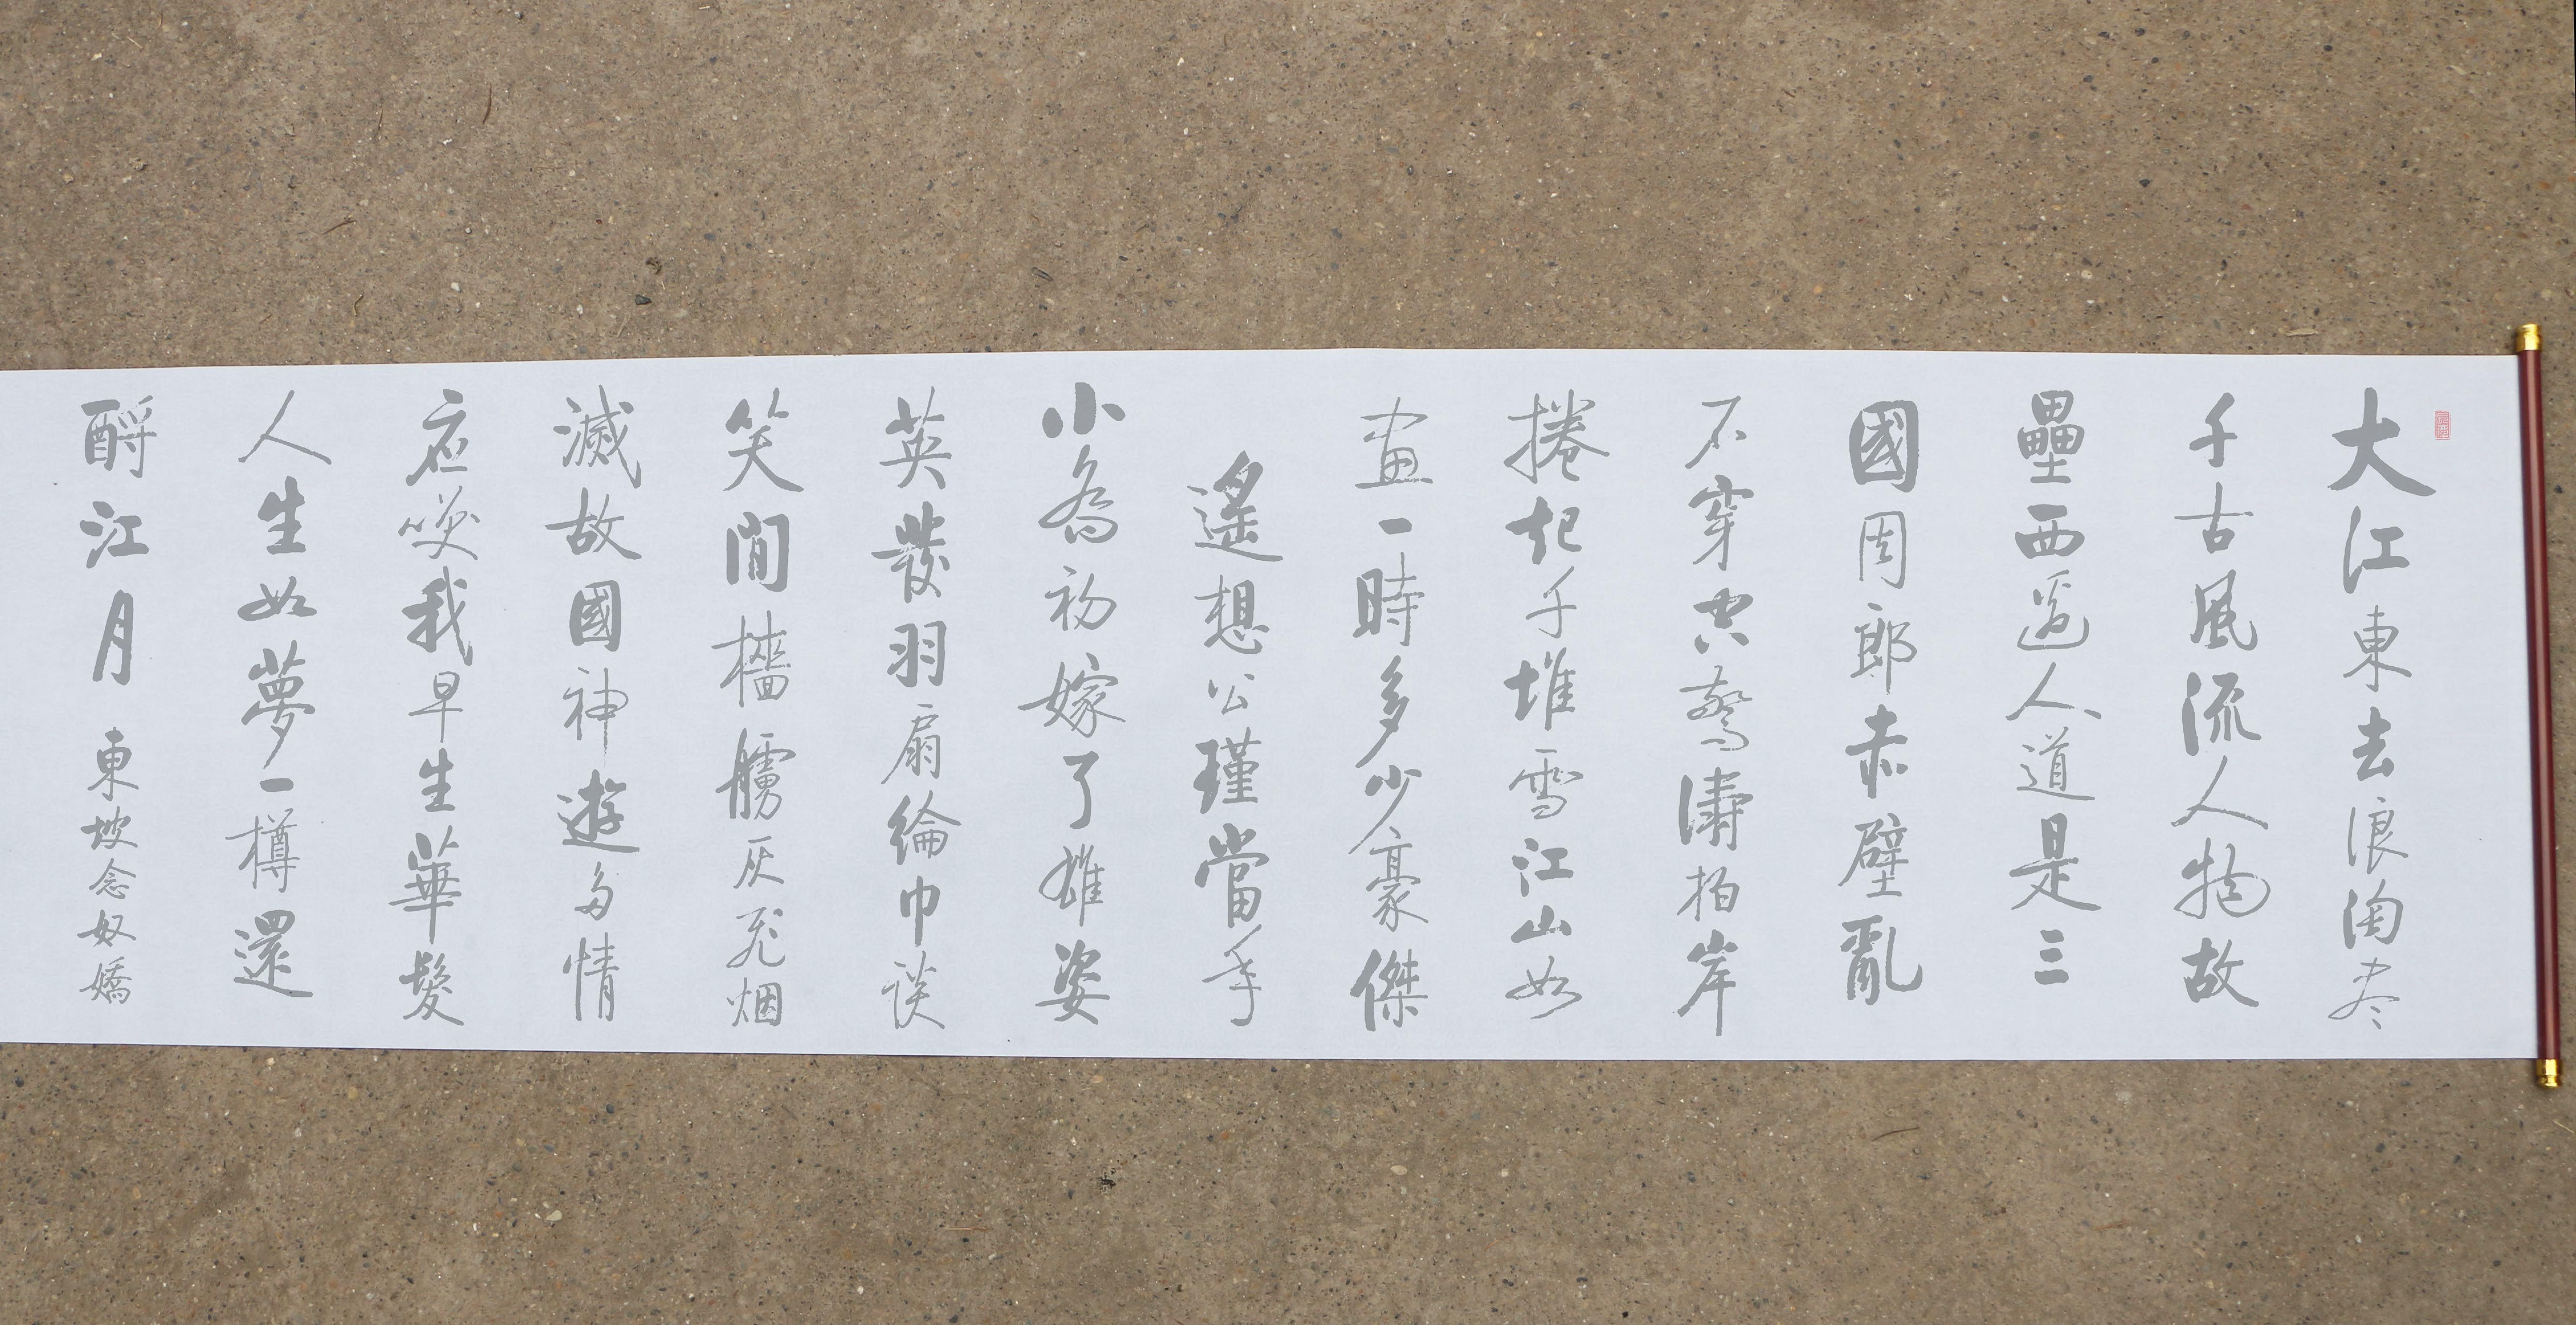 大江東去浪淘尽
千古風流人物故
壘西邊人道是三
國周郎赤壁亂
石穿空驚濤拍岸
捲起千堆雪江山如
畫一時多少豪傑
遙想公瑾當年
小喬初嫁了雄姿
英發羽扇綸巾談
笑間檣艣灰飛烟
滅故國神遊多情
應笑我早生華髮
人生如夢一樽還
酹江月 東坡念奴嬌